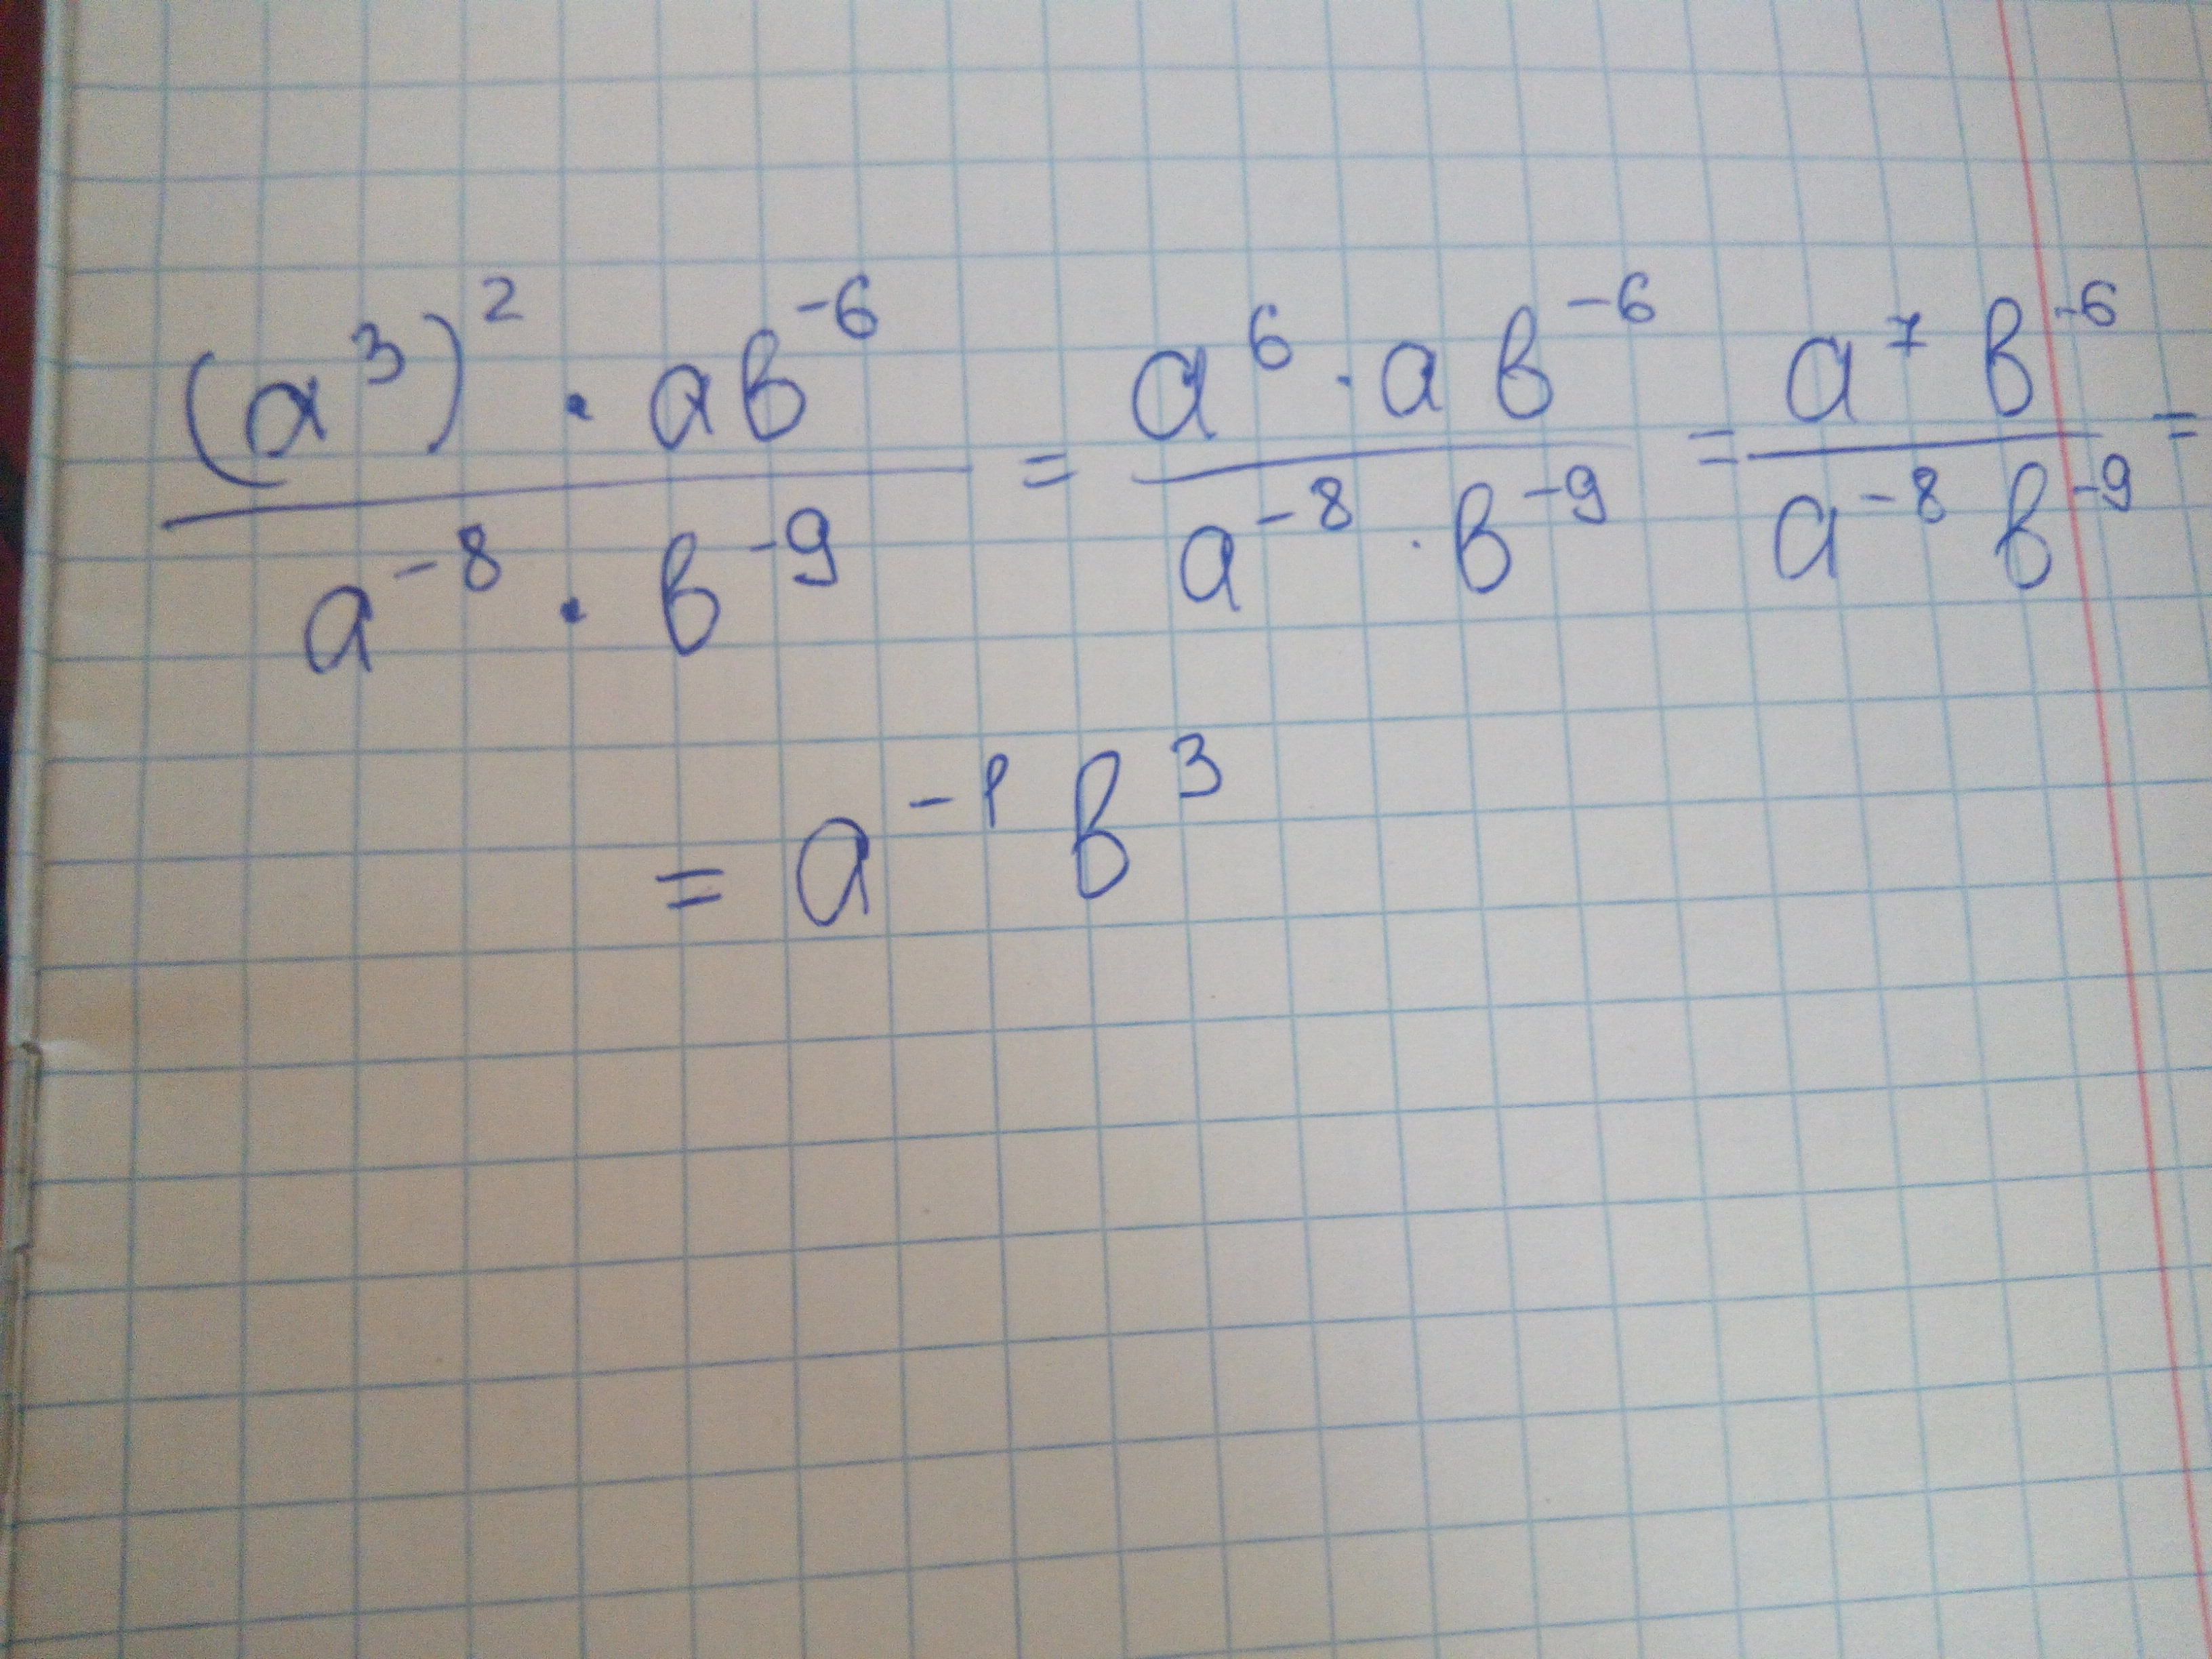 (a³)² · ab⁻⁶ / a⁻⁸ · b⁻⁹ = a⁶ · ab⁻⁶ / a⁻⁸ · b⁻⁹ = a⁷b⁻⁶ / a⁻⁸b⁻⁹ =
= a⁻¹b³